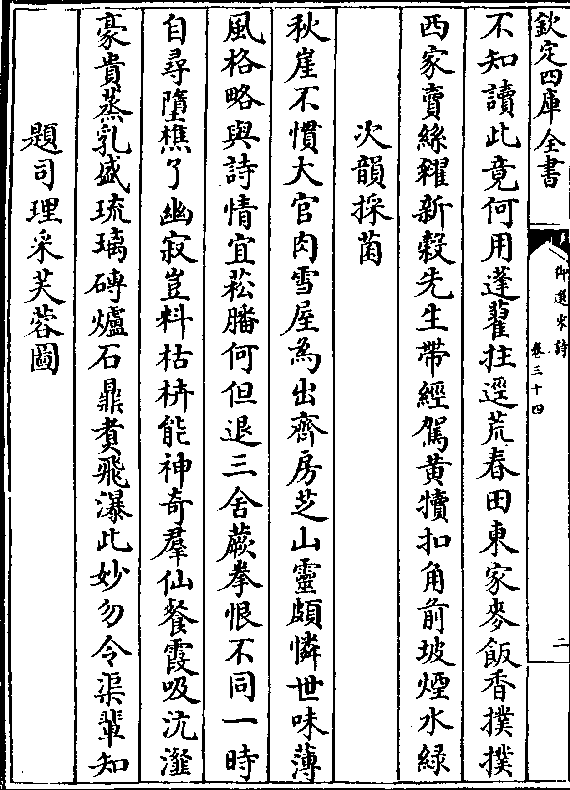 欽定四庫全書
御選宋詩
卷三十四
二
不知讀此竟何用蓬藋拄逕荒春田東家麥飯香撲撲
西家賣絲糴新穀先生帶經駕黄犢扣角前坡煙水綠
次韻採菌
秋崖不慣大官肉雪屋為出齋房芝山靈頗憐世味薄
風格略與詩情宜菘膰何但退三舍蕨拳恨不同一時
自尋墮樵了幽寂豈料枯枿能神奇羣仙餐霞吸沆瀣
豪貴蒸乳盛琉璃磚爐石鼎煑飛瀑此妙勿令渠輩知
題司理采芙蓉圖